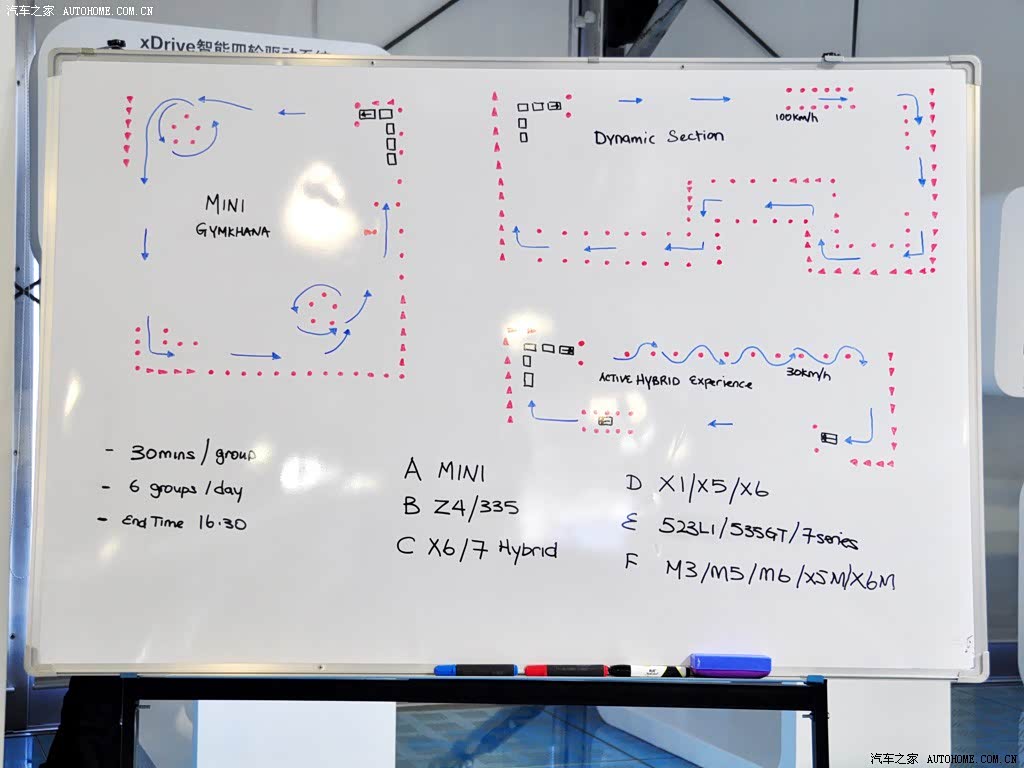 汽车之家 AUTOHOME.COM.CN
xDrive智能四轮驱动系统
MINI
GYMKHANA
Dynamic Section
100km/h
ACTIVE HYBRID Experience
30km/h
- 30mins/group
- 6 groups/day
- End Time 16.30
A MINI
B Z4/335
C X6/7 Hybrid
D X1/X5/X6
E 523LI/535GT/7series
F M3/M5/M6/X5M/X6M
汽车之家 AUTOHOME.COM.CN